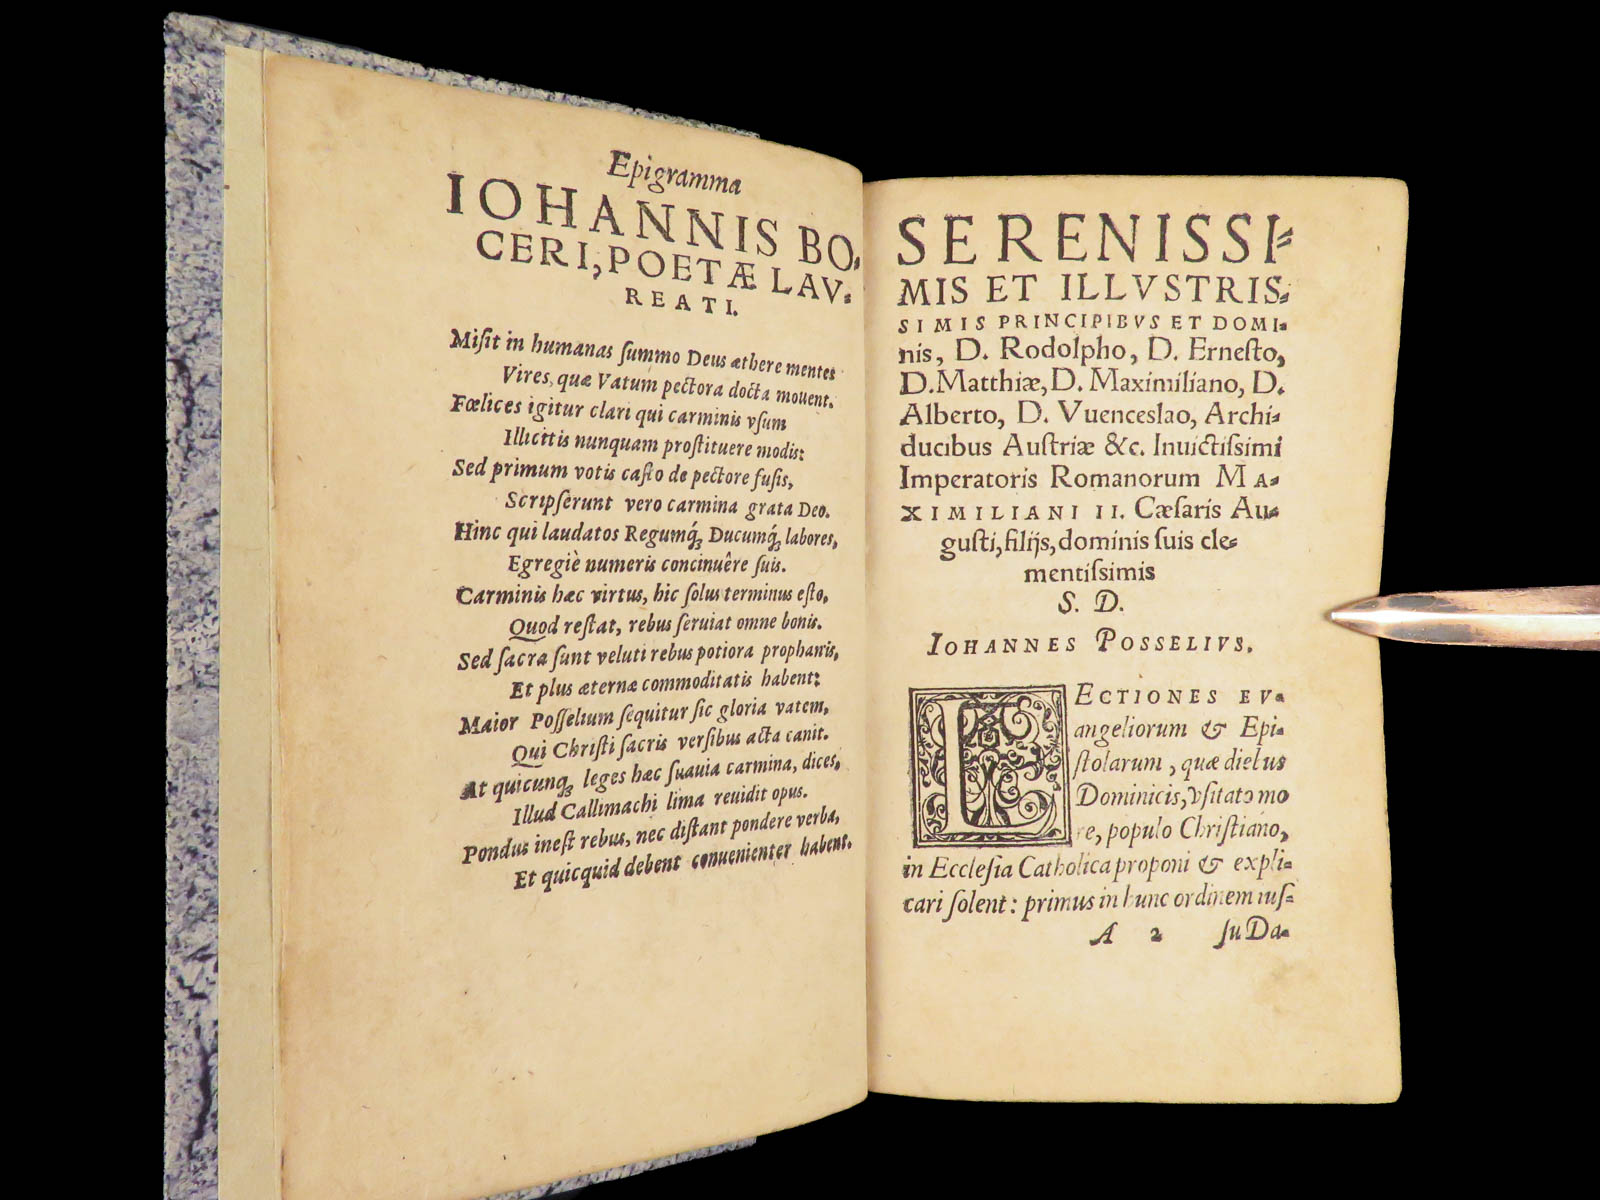 Epigramma
IOHANNIS BO-
CERI, POETÆ LAV-
REATI.
Misit in humanas summo Deus æthere mentes
Vires, quæ Vatum pectora docta mouent.
Fœlices igitur clari qui carminis vsum
Illicitis nunquam prostituere modis:
Sed primum votis casto de pectore fusis,
Scripserunt vero carmina grata Deo.
Hinc qui laudatos Regumq́; Ducumq́; labores,
Egregiè numeris concinuêre suis.
Carminis hæc virtus, hic solus terminus esto,
Quod restat, rebus seruiat omne bonis.
Sed sacra sunt veluti rebus potiora prophanis,
Et plus æternæ commoditatis habent:
Maior Posselium sequitur sic gloria vatem,
Qui Christi sacris versibus acta canit.
At quicunq; leges hæc suauia carmina, dices,
Illud Callimachi lima reuidit opus.
Pondus inest rebus, nec distant pondere verba,
Et quicquid debent conuenienter habent.
SERENISSI-
MIS ET ILLVSTRIS-
SIMIS PRINCIPIBVS ET DOMI-
nis, D. Rodolpho, D. Ernesto,
D. Matthiæ, D. Maximiliano, D.
Alberto, D. Vuenceslao, Archi-
ducibus Austriæ &c. Inuictissimi
Imperatoris Romanorum MA-
XIMILIANI II. Cæsaris Au-
gusti, filijs, dominis suis cle-
mentissimis
S. D.
IOHANNES POSSELIVS.
LECTIONES EV-
angeliorum & Epi-
stolarum, quæ diebus
Dominicis, vsitato mo
re, populo Christiano,
in Ecclesia Catholica proponi & expli-
cari solent: primus in hunc ordinem ius-
A 2 su Da-